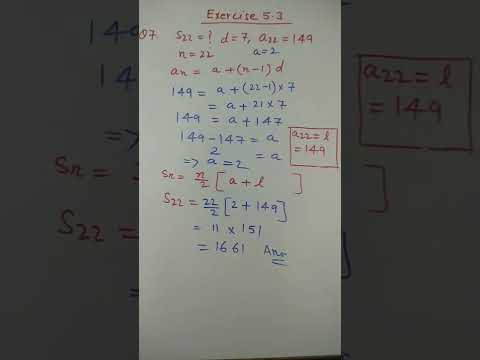 Exercise 5.3
Q7. S22 = ? d = 7, a22 = 149
n = 22 a = 2
an = a + (n-1) d
149 = a + (22-1) x 7
= a + 21 x 7
149 = a + 147
149 - 147 = a
2 = a
=> a = 2
a22 = l
= 149
Sn = n/2 [ a + l ]
S22 = 22/2 [ 2 + 149 ]
= 11 x 151
= 1661 Ans
149
14
a22 = l
= 149
Sn =
S22